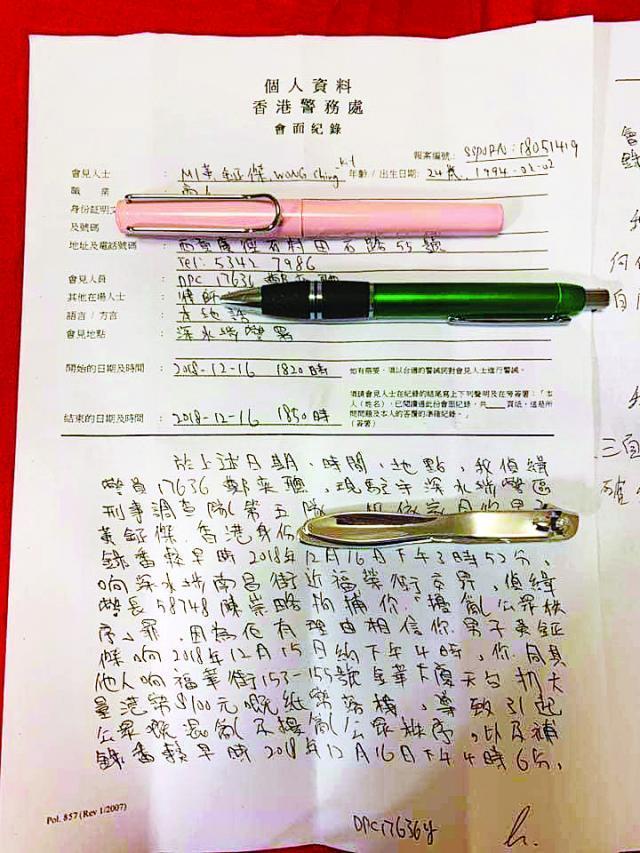 個人資料
香港警務處
會面紀錄
報案編號: SSPDRN: 18051419
會見人士: M1黃鉦傑 WONG Ching Kit 年齡/出生日期: 24歲, 1994-02-02
職業
身份証明文
及號碼
地址及電話號碼 55號
Tel: 5342 7986
會見人員: DPC 17636
其他在場人士 律師
語言/方言: 本地話
會見地點: 深水埗警署
開始的日期及時間: 2018-12-16 1820時 如有需要,須以合適的警誡詞對會見人士進行警誡。
須請會見人士在紀錄的結尾寫上下列聲明及在旁簽署:「本
人(姓名),已閱讀過此份會面紀錄,共 頁紙,這是所
問問題及本人的答覆的準確紀錄。」
結束的日期及時間: 2018-12-16 1850時 (簽署)
於上述日期、時間、地點,我偵緝
警員17636鄭英聰,現駐守深水埗警區
刑事調查隊第五隊
黃鉦傑,香港身份
錄番較早時2018年12月16日下午3時52分,
响深水埗南昌街近福榮街交界,偵緝
警長58748陳崇略拘捕你"擾亂公眾秩
序"罪,因為佢有理由相信你男子黃鉦
傑响2018年12月15日約下午4時,你同其
他人响福華街153-155號金華大廈天台扔大
量港幣$100元嘅紙幣落樓,導致引起
公眾嘅混亂及擾亂公眾秩序。以及補
錄番較早時2018年12月16日下午4時6分,
Pol. 857 (Rev 1/2007)
DPC17636